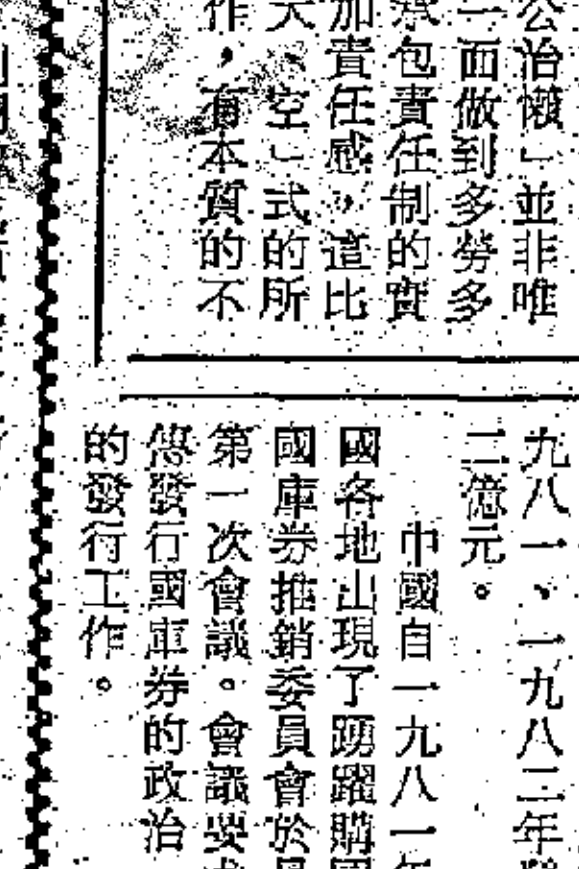 公治懶」並非唯
一面做到多勞多
承包責任制的實
加責任感，這比
大、空」式的所
作，有本質的不
九八一、一九八二年發
二億元。
中國自一九八一年
國各地出現了踴躍購國
國庫券推銷委員會於
第一次會議。會議要求
傳發行國庫券的政治
的發行工作。